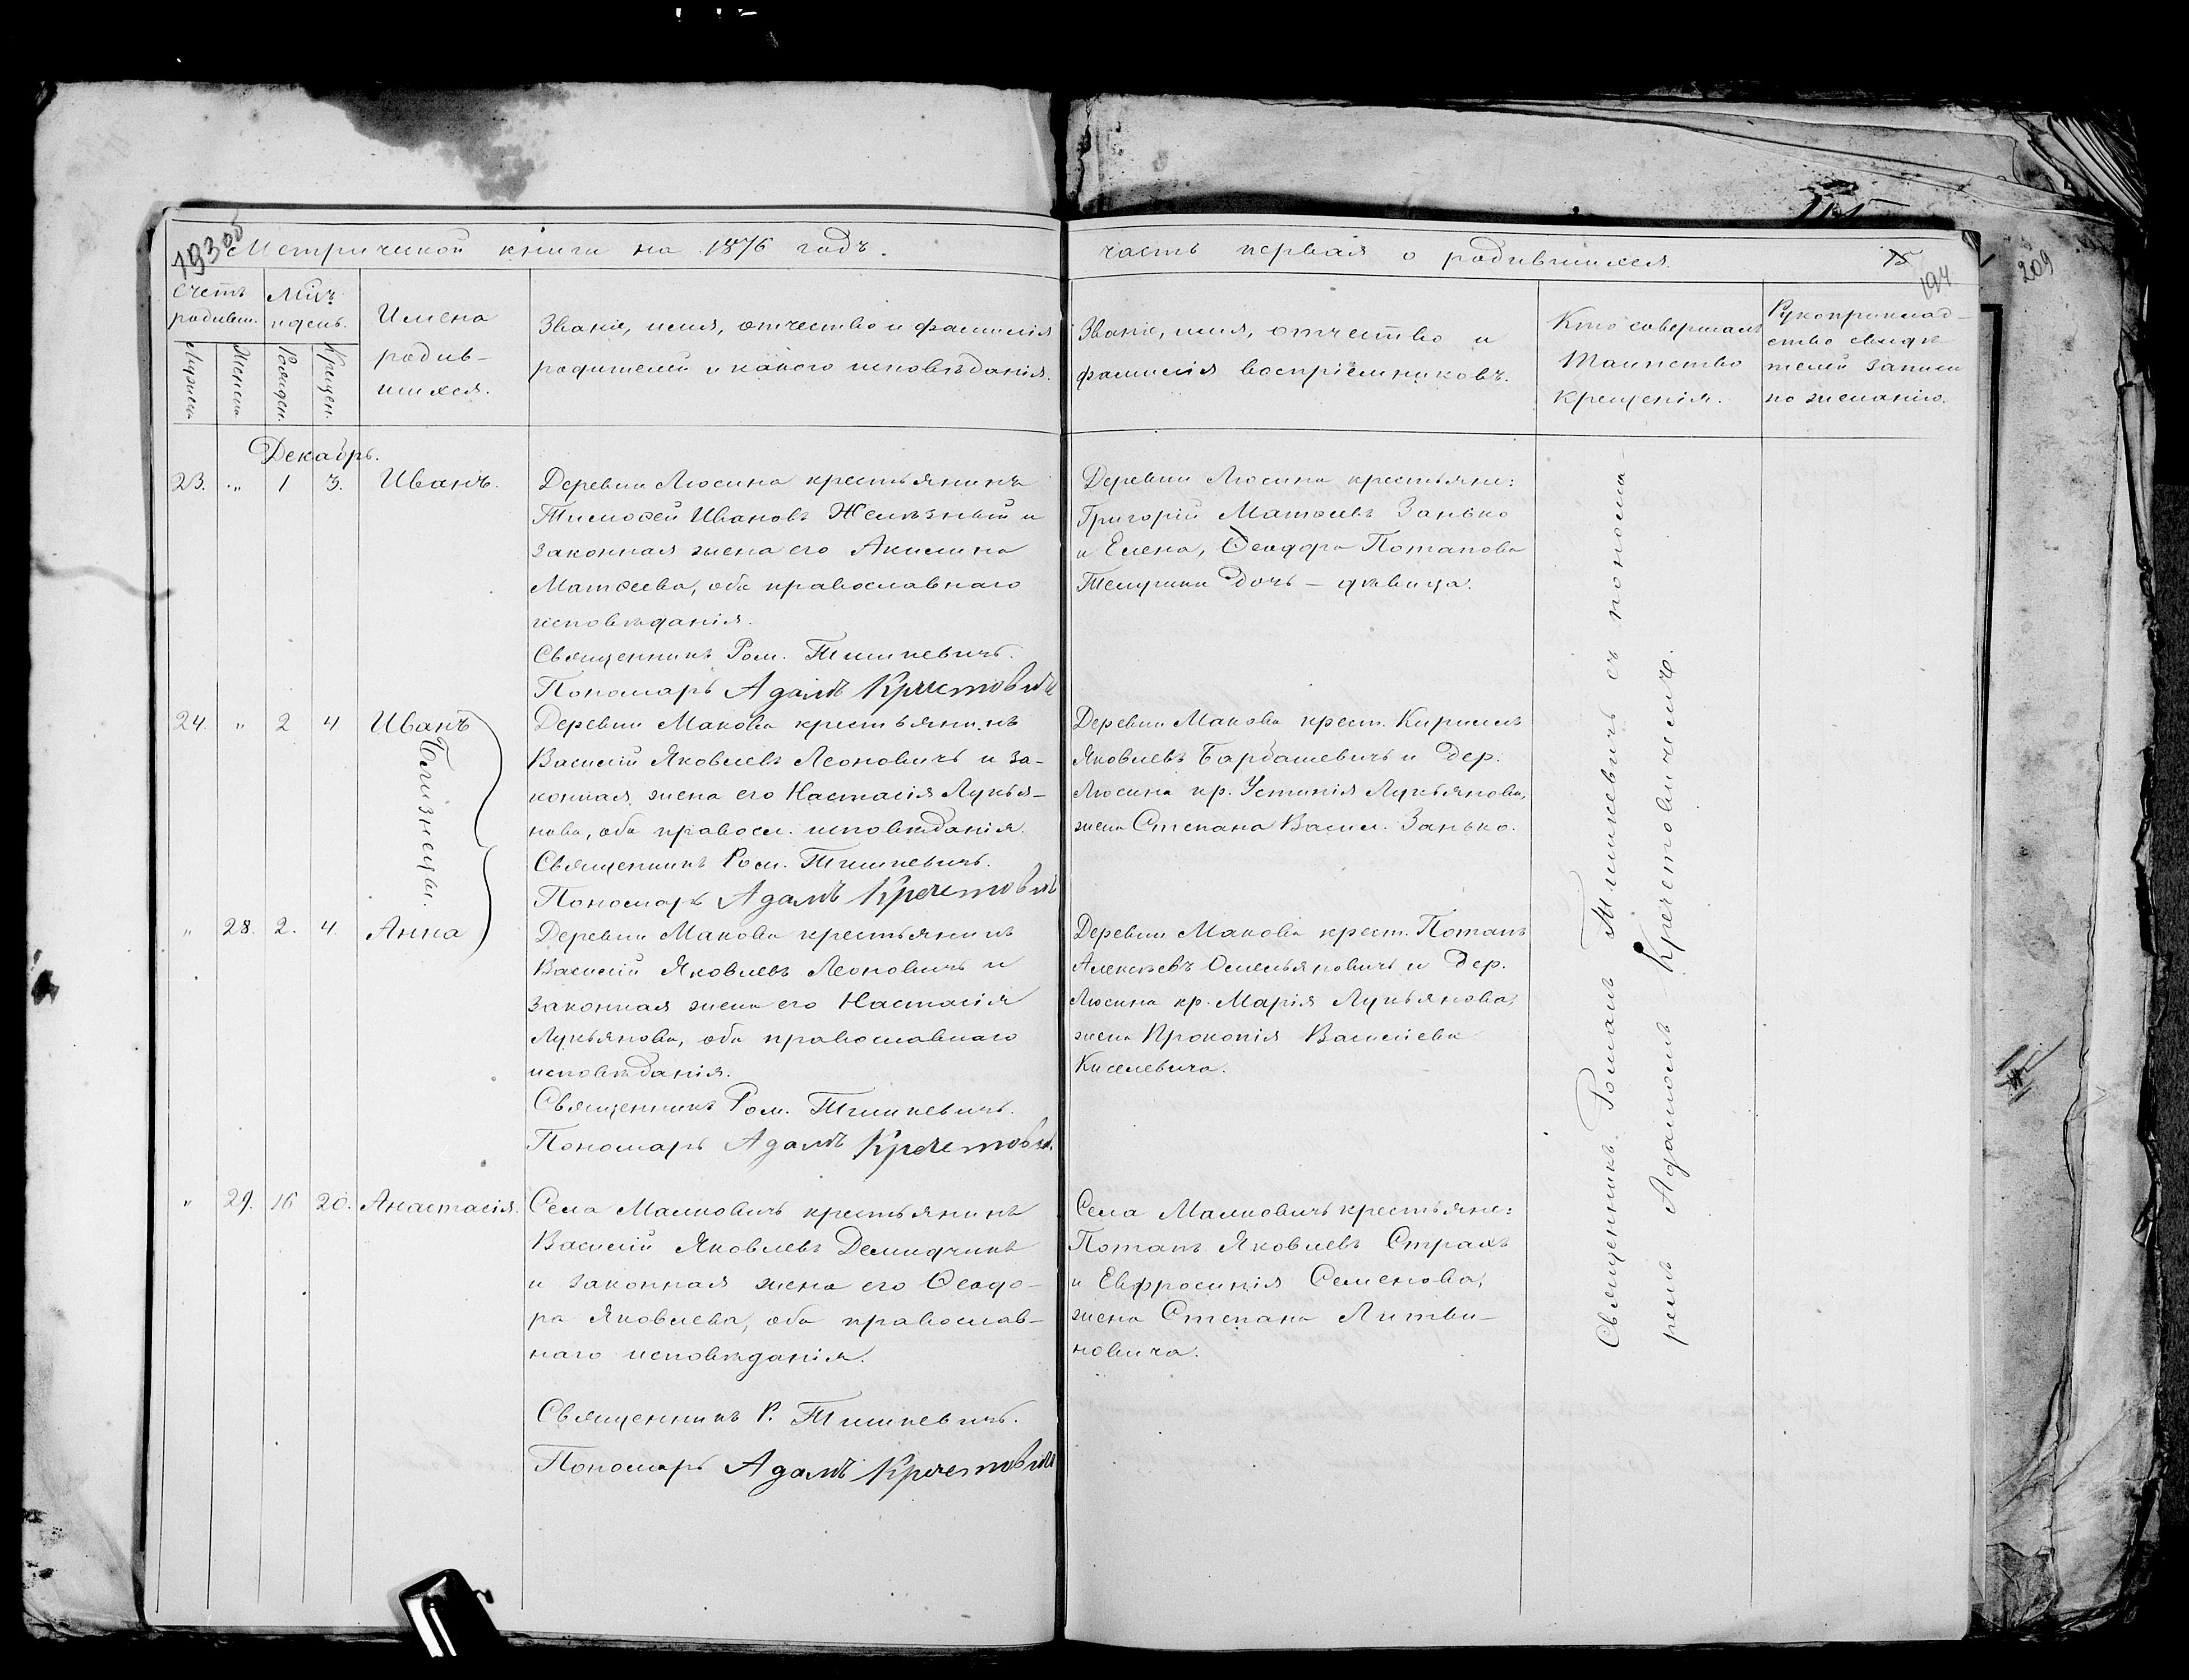 193 об
Метрической книги на 1876 годъ.
Счетъ родивш.
Мужеска
Женска
Мѣс. и день.
Рожден.
Крещен.
Имена
родив-
шихся.
Званіе, имя, отчество и фамилія
родителей и какого исповѣданія.
Декабрь.
23. „ 1 3. Иванъ.
Деревни Люсина крестьянинъ
Тимоѳей Ивановъ Желѣзный и
законная жена его Акилина
Матѳеева, оба православнаго
исповѣданія.
Священникъ Ром. Тишкевичъ.
Пономарь Адамъ Кречетовичъ
24. „ 2 4 Иванъ
Близнецы.
Деревни Макова крестьянинъ
Василій Яковлевъ Леоновичъ и за-
конная жена его Настасія Лукья-
нова, оба правосл. исповѣданія.
Священникъ Ром. Тишкевичъ.
Пономарь Адамъ Кречетовичъ
„ 28. 2. 4. Анна
Деревни Макова крестьянинъ
Василій Яковлевъ Леоновичъ и
законная жена его Настасія
Лукьянова, оба православнаго
исповѣданія.
Священникъ Ром. Тишкевичъ.
Пономарь Адамъ Кречетович.
„ 29. 16 20. Анастасія.
Села Малковичъ крестьянинъ
Василій Яковлевъ Демидчикъ
и законная жена его Ѳеодо-
ра Яковлева, оба православ-
наго исповѣданія.
Священникъ Р. Тишкевичъ.
Пономарь Адамъ Кречетовичъ
часть первая о родившихся.
75
194
209
Званіе, имя, отчество и
фамилія воспріемниковъ.
Кто совершалъ
Таинство
крещенія.
Рукоприклад-
ство свидѣ
телей записи
по желанію.
Деревни Люсина крестьяне:
Григорій Матѳеевъ Занько
и Елена, Ѳеодора Потапова
дочь – дѣвица.
Деревни Макова крест. Кириллъ
Яковлевъ Барбашевичъ и дер.
Люсина кр. Устинія Лукьянова,
жена Степана Васил. Занько.
Деревни Макова крест. Потапъ
Алексѣевъ Омельяновичъ и дер.
Люсина кр. Марія Лукьянова,
жена Прокопія Василіева
Киселевича.
Села Малковичъ крестьяне:
Потапъ Яковлевъ Страхъ
и Евфросинія Семенова,
жена Степана Литви-
новича.
Священникъ Романъ Тишкевичъ съ понома-
ремъ Адамомъ Кречетовичемъ.